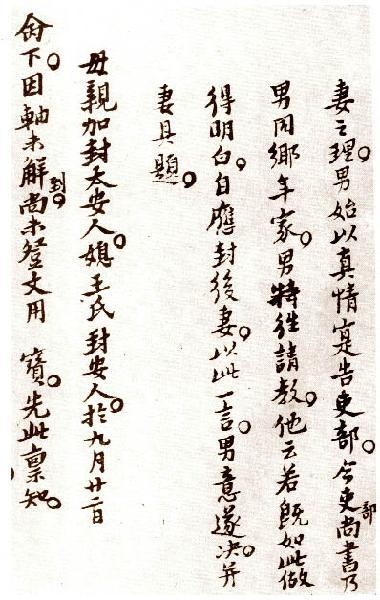 妻之理。男始以真情寔告吏部。今吏部尚書乃
男同鄉年家。男特往請教。他云若既如此做
得明白。自應封後妻。以此一言。男意遂决。并
妻具題。
母親加封太安人。媳王氏封安人。於九月廿二日
命下。因軸未解到。尚未登文用 寶。先此稟知。